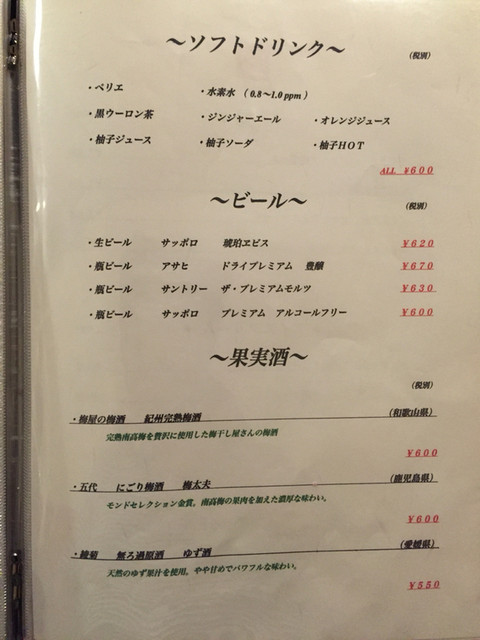 ～ソフトドリンク～
（税別）
・ペリエ ・水素水 （0.8～1.0ppm）
・黒ウーロン茶 ・ジンジャーエール ・オレンジジュース
・柚子ジュース ・柚子ソーダ ・柚子HOT
ALL ¥600
～ビール～
（税別）
・生ビール サッポロ 琥珀ヱビス ¥620
・瓶ビール アサヒ ドライプレミアム 豊醸 ¥670
・瓶ビール サントリー ザ・プレミアムモルツ ¥630
・瓶ビール サッポロ プレミアム アルコールフリー ¥600
～果実酒～
（税別）
・梅屋の梅酒 紀州完熟梅酒 （和歌山県）
完熟南高梅を贅沢に使用した梅干し屋さんの梅酒
¥600
・五代 にごり梅酒 梅太夫 （鹿児島県）
モンドセレクション金賞。南高梅の果肉を加えた濃厚な味わい。
¥600
・綾菊 無ろ過原酒 ゆず酒 （愛媛県）
天然のゆず果汁を使用。やや甘めでパワフルな味わい。
¥550